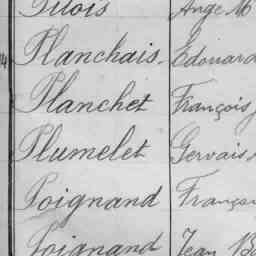 Pilois Ange M
Planchais. Edouard
Planchet François
Plumelet Gervais
Poignand Franço
Poignand Jean B